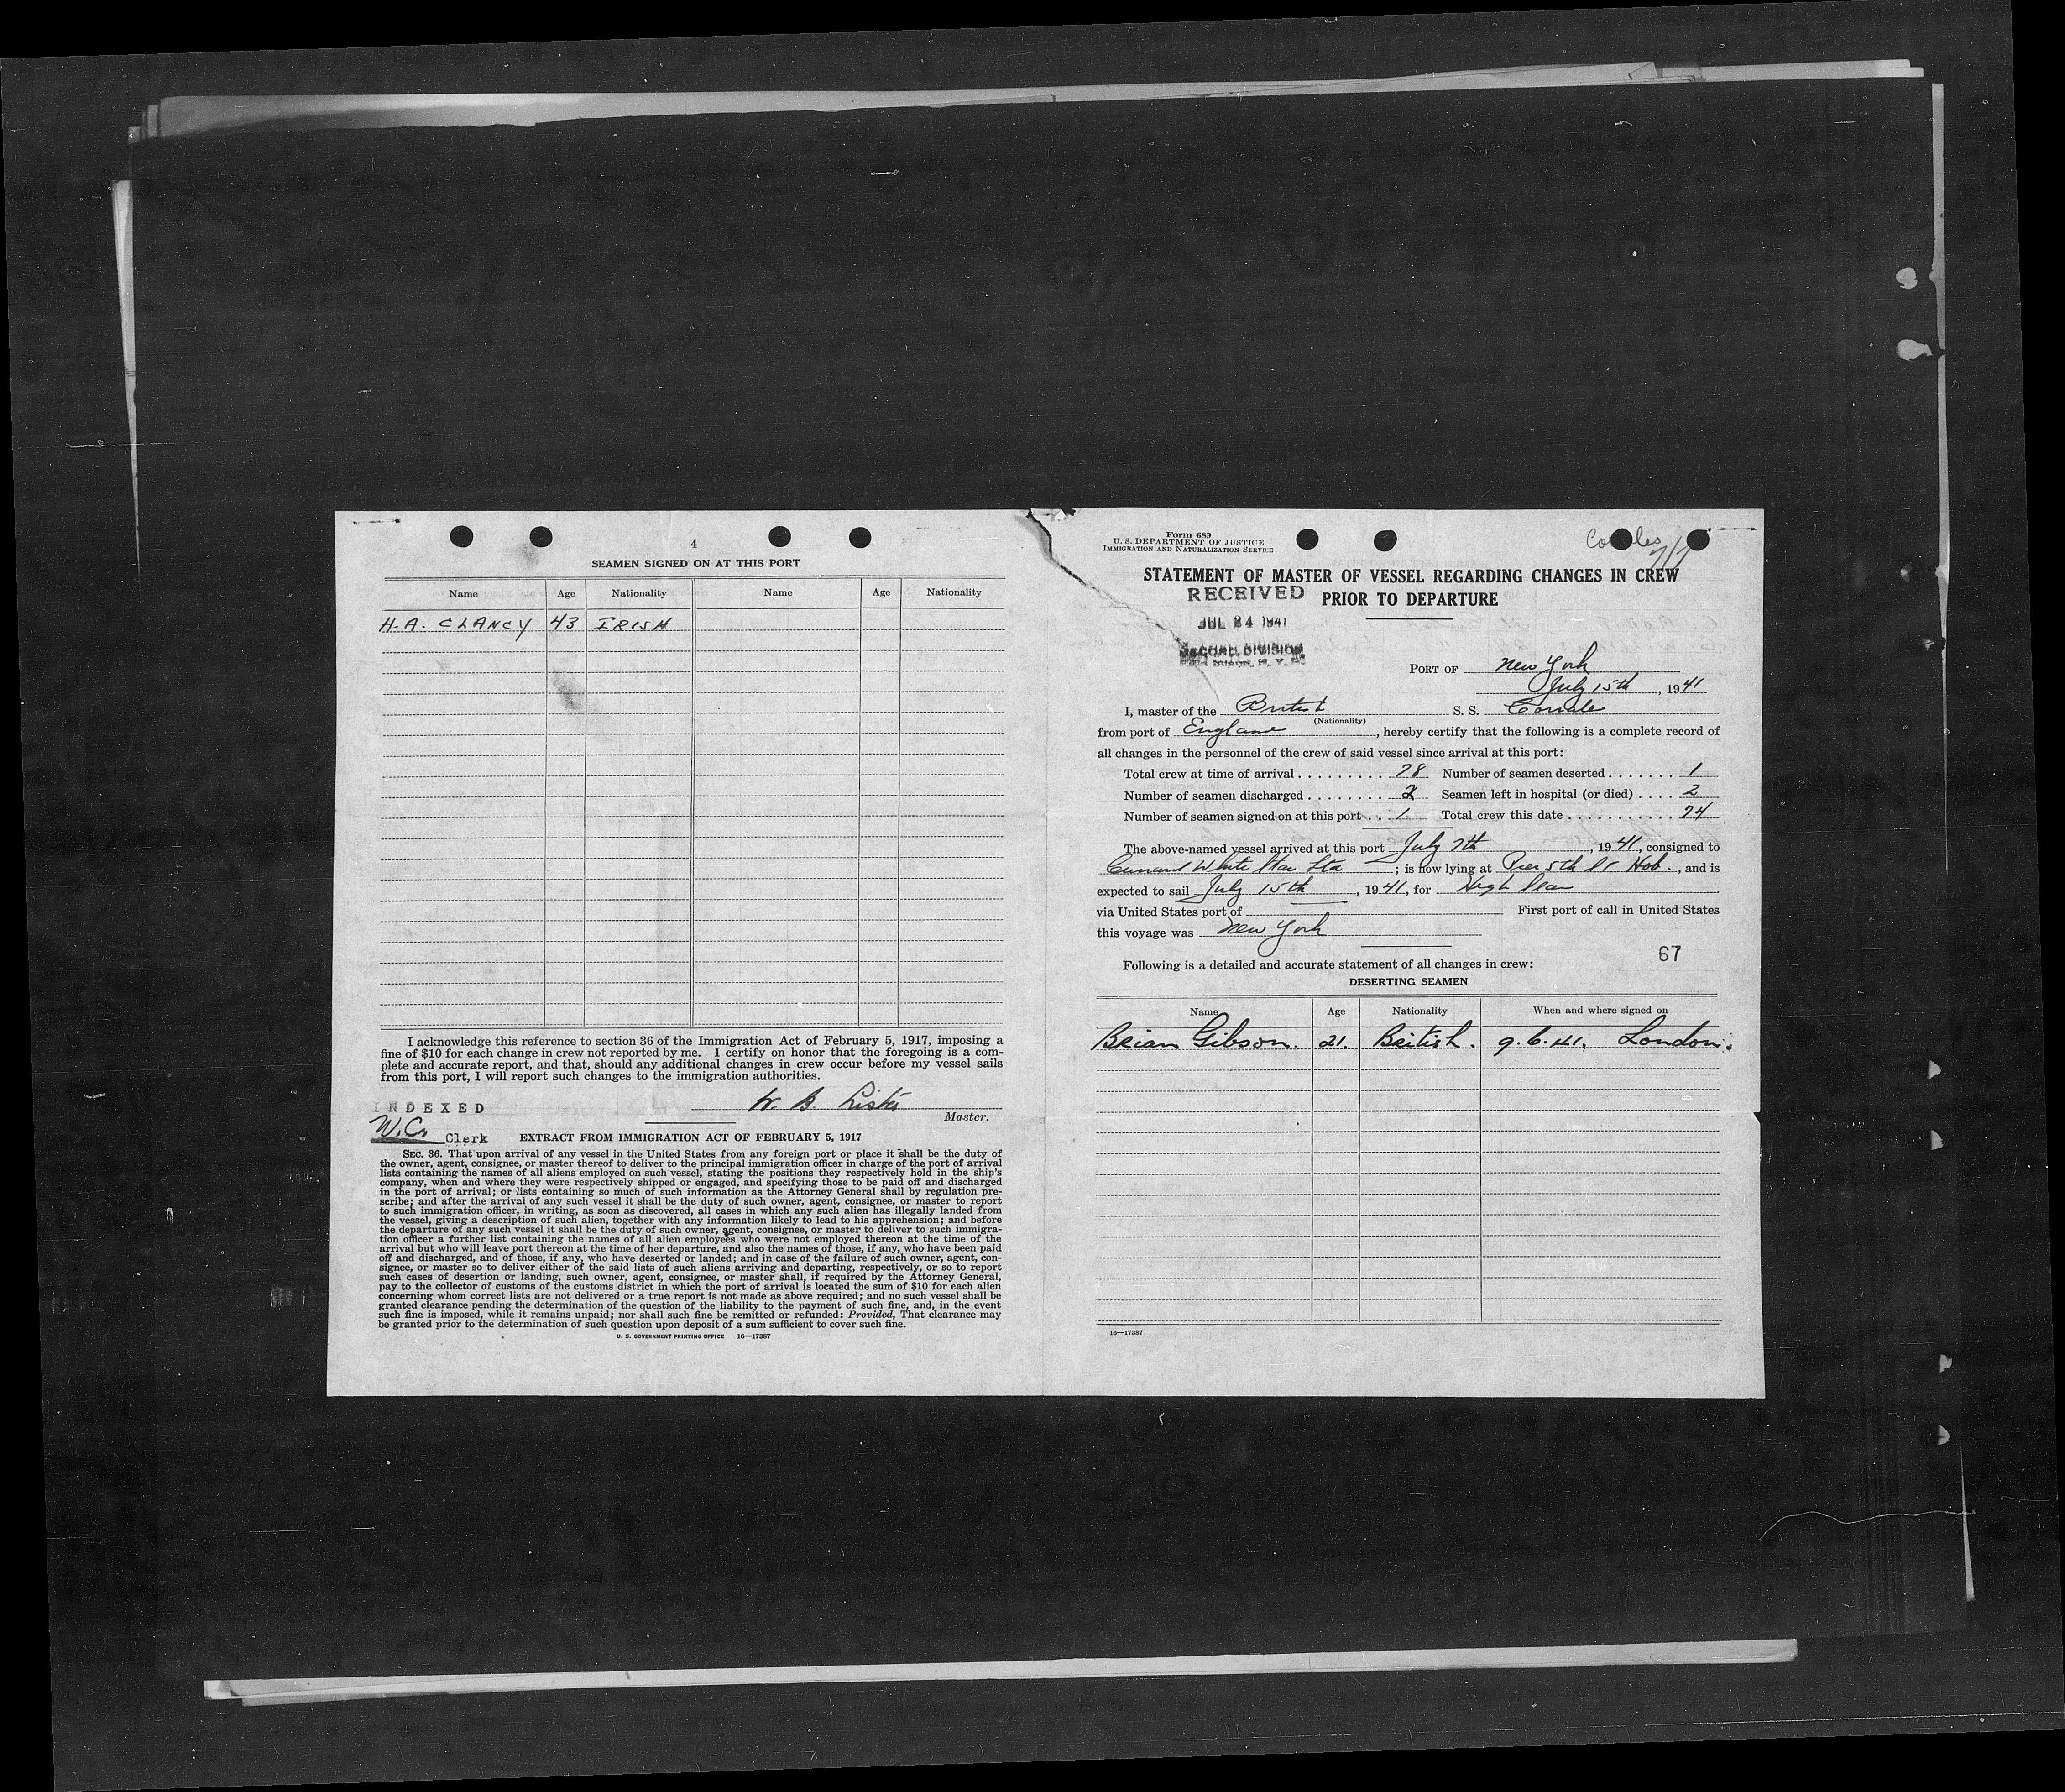 4
SEAMEN SIGNED ON AT THIS PORT
Name Age Nationality Name Age Nationality
H.A. CLANCY 43 IRISH
I acknowledge this reference to section 36 of the Immigration Act of February 5, 1917, imposing a
fine of $10 for each change in crew not reported by me. I certify on honor that the foregoing is a com-
plete and accurate report, and that, should any additional changes in crew occur before my vessel sails
from this port, I will report such changes to the immigration authorities.
INDEXED
W. B. Lister
Master.
Clerk
EXTRACT FROM IMMIGRATION ACT OF FEBRUARY 5, 1917
SEC. 36. That upon arrival of any vessel in the United States from any foreign port or place it shall be the duty of
the owner, agent, consignee, or master thereof to deliver to the principal immigration officer in charge of the port of arrival
lists containing the names of all aliens employed on such vessel, stating the positions they respectively hold in the ship's
company, when and where they were respectively shipped or engaged, and specifying those to be paid off and discharged
in the port of arrival; or lists containing so much of such information as the Attorney General shall by regulation pre-
scribe; and after the arrival of any such vessel it shall be the duty of such owner, agent, consignee, or master to report
to such immigration officer, in writing, as soon as discovered, all cases in which any such alien has illegally landed from
the vessel, giving a description of such alien, together with any information likely to lead to his apprehension; and before
the departure of any such vessel it shall be the duty of such owner, agent, consignee, or master to deliver to such immigra-
tion officer a further list containing the names of all alien employees who were not employed thereon at the time of the
arrival but who will leave port thereon at the time of her departure, and also the names of those, if any, who have been paid
off and discharged, and of those, if any, who have deserted or landed; and in case of the failure of such owner, agent, con-
signee, or master so to deliver either of the said lists of such aliens arriving and departing, respectively, or so to report
such cases of desertion or landing, such owner, agent, consignee, or master shall, if required by the Attorney General,
pay to the collector of customs of the customs district in which the port of arrival is located the sum of $10 for each alien
concerning whom correct lists are not delivered or a true report is not made as above required; and no such vessel shall be
granted clearance pending the determination of the question of the liability to the payment of such fine, and, in the event
such fine is imposed, while it remains unpaid; nor shall such fine be remitted or refunded: Provided, That clearance may
be granted prior to the determination of such question upon deposit of a sum sufficient to cover such fine.
U. S. GOVERNMENT PRINTING OFFICE 16—17387
Form 689
U. S. DEPARTMENT OF JUSTICE
IMMIGRATION AND NATURALIZATION SERVICE
STATEMENT OF MASTER OF VESSEL REGARDING CHANGES IN CREW
PRIOR TO DEPARTURE
RECEIVED
JUL 24 1941
SECOND DIVISION
PORT OF New York
July 15th, 1941
I, master of the British S. S.
(Nationality)
from port of England, hereby certify that the following is a complete record of
all changes in the personnel of the crew of said vessel since arrival at this port:
Total crew at time of arrival 78 Number of seamen deserted 1
Number of seamen discharged 2 Seamen left in hospital (or died) 2
Number of seamen signed on at this port 1 Total crew this date 74
The above-named vessel arrived at this port July 7th, 1941, consigned to
Cunard White Star Ltd; is now lying at Pier 5th St Hob., and is
expected to sail July 15th, 1941, for High Seas
via United States port of First port of call in United States
this voyage was New York
67
Following is a detailed and accurate statement of all changes in crew:
DESERTING SEAMEN
Name Age Nationality When and where signed on
Brian Gibson. 21. British. 9.6.41. London.
16—17387